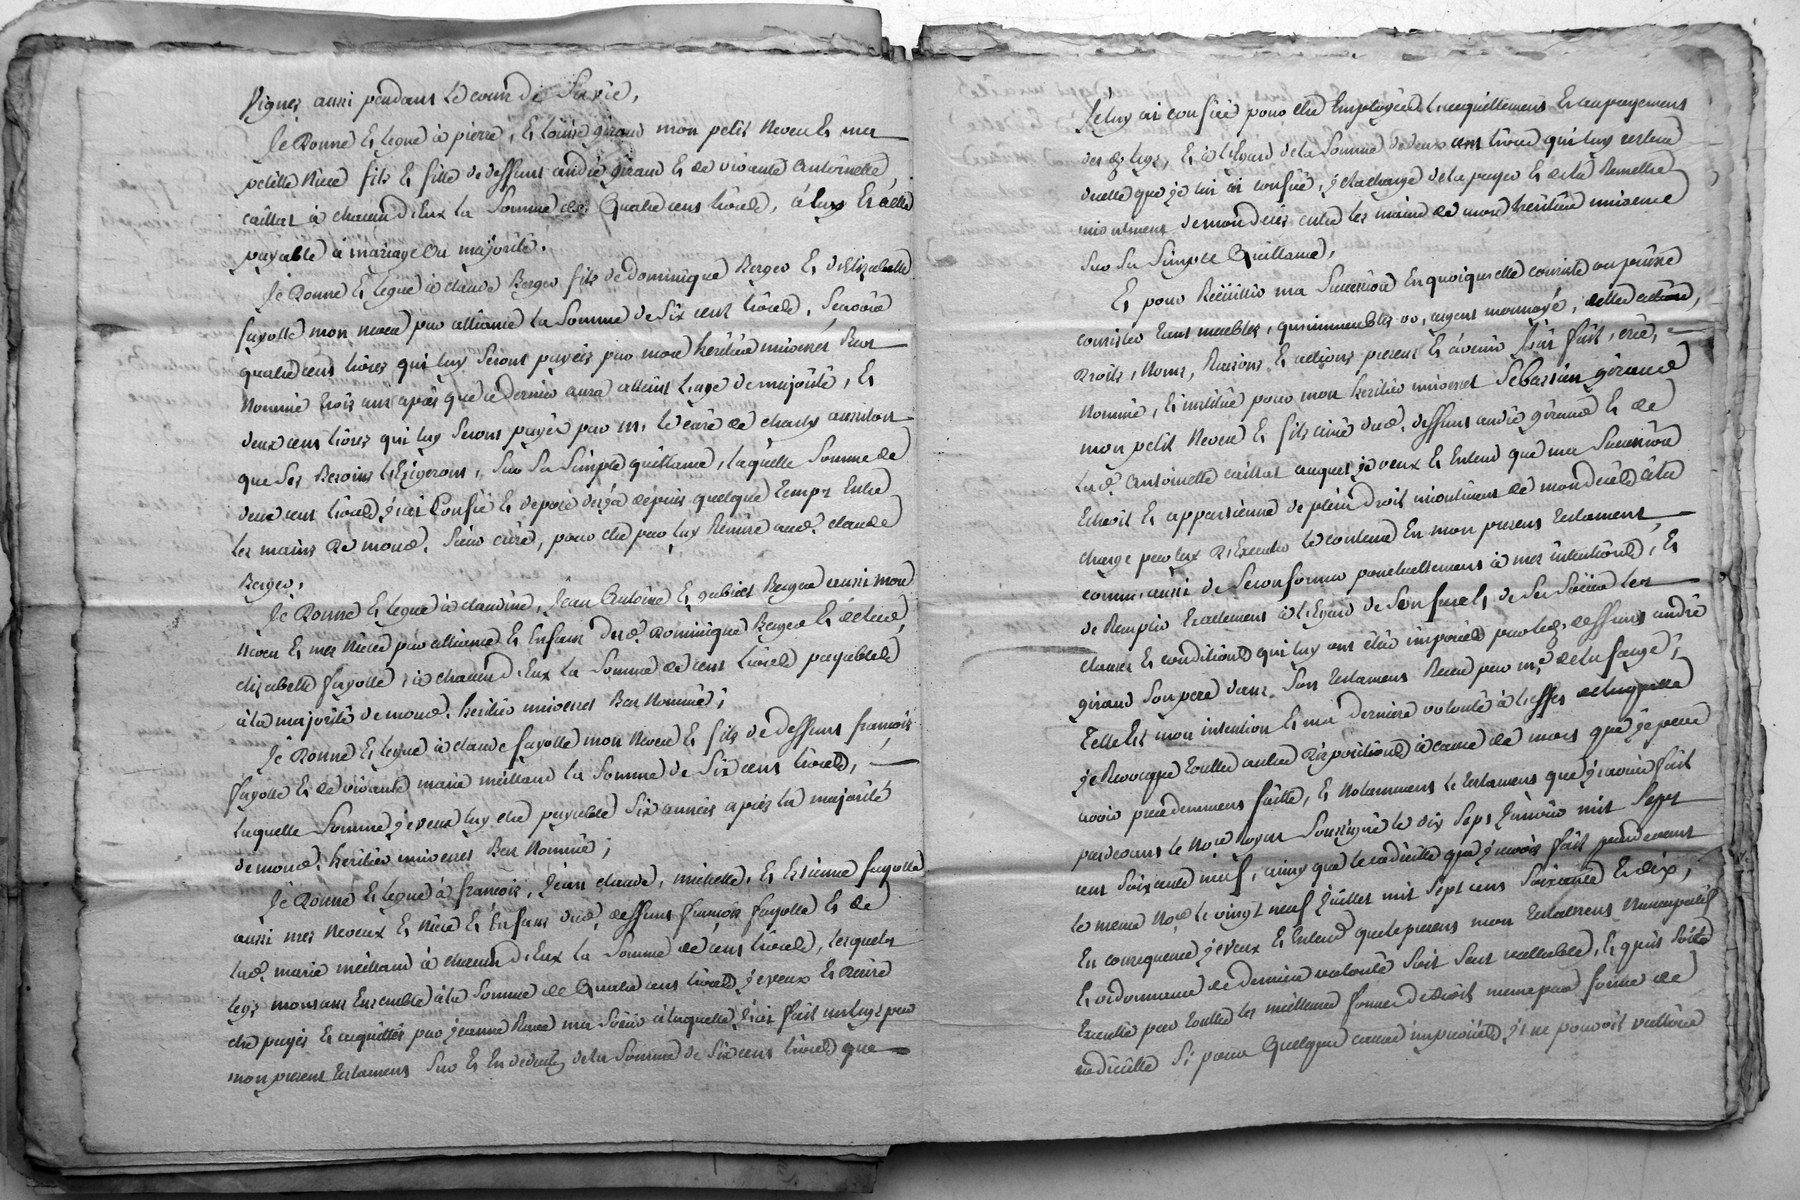 Vignes aussi pendant le cour de sa vie,
Je donne et legue à pierre, et Louise giraud mon petit Neveu et ma
petitte Niece fils et fille de deffunt andré giraud et de vivante Antoinette
caillat à chacun d'eux la somme de Quatre cens livres, à luy et à elle
payable à mariage ou majorité,
Je donne et legue à claude Berger fils de dominique Berger et d'Elizabette
fayolle mon neveu par alliance la somme de six cens livres, scavoir
quatre cens livres qui luy seront payées par mon heritier universel Bas
Nommé trois ans après que ce dernier aura atteint l'age de majorité, et
deux cens livres qui luy seront payés par m. le curé de charly aussitot
que ses Besoins l'exigeront, sur sa simple quittance, laquelle somme de
deux cens livres j'ai confié et deposé desja depuis quelque temps entre
les mains de mond. sieur curé, pour etre par luy remise aud. claude
Berger,
Je donne et legue à claudine, Jean Antoine et gabriel Berger aussi mon
neveu et mes Niece par alliance et enfans dud. dominique Berger et de lad.
elizabette fayolle, à chacun d'eux la somme de cens livres payables
à la majorité de mond. heritier universel Bas Nommé;
Je donne et legue à claude fayolle mon neveu et fils de deffunt françois
fayolle et de vivante marie meilland la somme de six cens livres,
laquelle somme je veux luy etre payable six années après la majorité
de mond. heritier universel Bas Nommé;
Je donne et legue à francois, Jean claude, michelle, et Estienne fayolle
aussi mes Neveux et Niece et enfans dud. deffunt françois fayolle et de
lad. marie meilland à chacun d'eux la somme de cens livres, lesquels
legs montant ensemble à la somme de Quatre cens livres je veux et desire
etre payés et acquittés par jeanne Ravet ma soeur à laquelle j'ai fait un legs par
mon present testament sur et en deduction de la somme de six cens livres que
Je luy ai confiée pour etre employée à l'acquittement et au payement
des d. legs, et à l'egard de la somme de deux cens livres qui luy restera
de celle que je lui ai confiée, je la charge de la payer et de la Remettre
incontinent de mon deces entre les mains de mon heritier universel
sur sa simple Quittance,
Et pour Recueillir ma succession en quoiqu'elle consiste ou puisse
consister tant meubles, qu'immeubles, or, argent monnoyé, dettes actives,
droits, noms, Raisons et actions presens et à venir j'ai fait, créé,
Nommé, et institué pour mon heritier universel Sebastien giraud
mon petit Neveu et fils ainé dud. deffunt andré giraud et de
lad. Antoinette caillat auquel je veux et entend que ma succession
Echoit et appartienne de plein droit incontinent de mon deces à la
charge par lux d'Executer le contenu en mon present testament,
comme aussi de se conformer ponctuellement à mes intentions, et
de Remplir exactement à l'egard de son frere et de sa soeur les
clauses et conditions qui luy ont été imposées par led. deffunt andré
giraud son pere dans son testament Receu par m.e delafarge;
Telle est mon intention et ma derniere volonté à l'effet de laquelle
je Revocque touttes autres dispositions à cause de mort que je peux
avoir precedemment faitte, et Notamment le testament que j'avois fait
pardevant le No.re Royal soussigné le dix sept Janvier mil sept
cens soixante neuf, ainsy que le codicille que j'avois fait pardevant
le meme No.re le vingt neuf Juillet mil sept cens soixante et dix,
En consequence je veux et entend que le present mon testament Nuncupatif
et ordonnance de derniere volonté soit seul vallable, et qu'il soit
Executé par touttes les meilleures formes de droit meme par forme de
codicille si pour Quelque cause imprevüe il ne pouvoit valloir